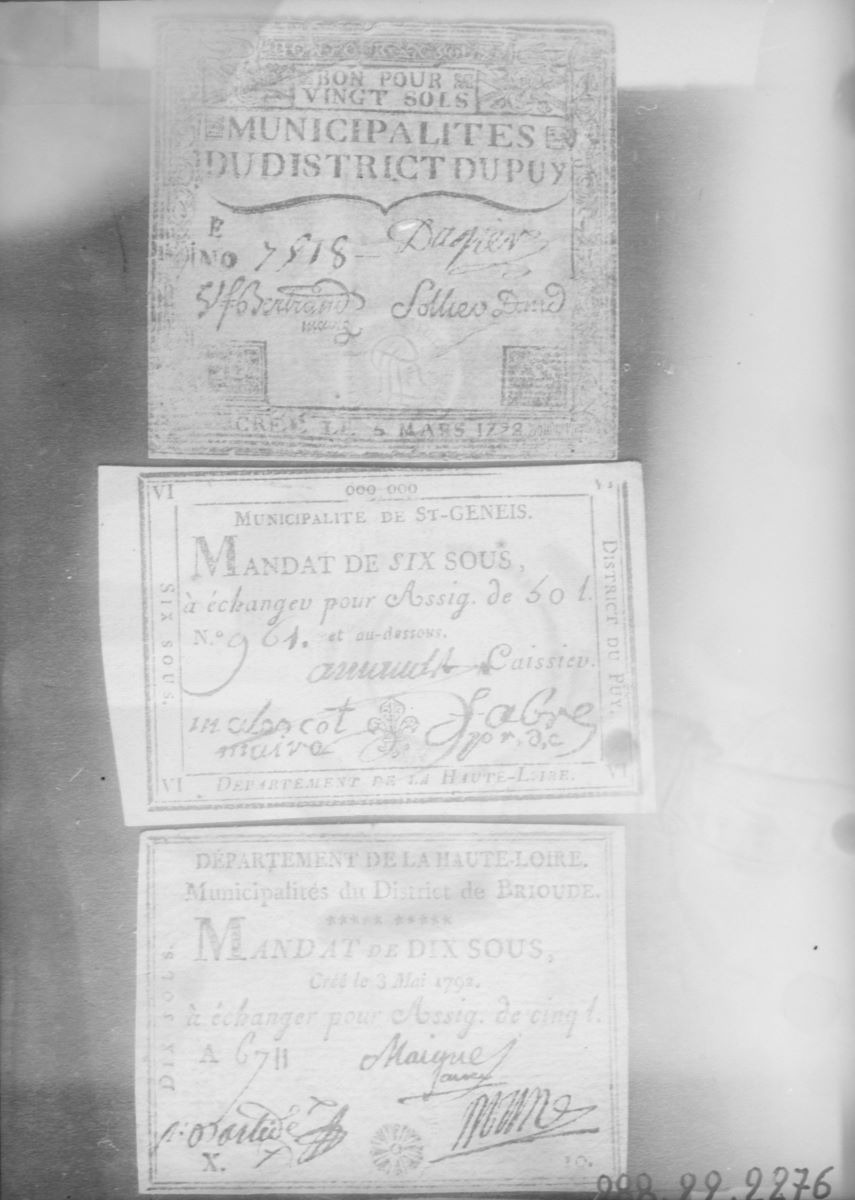 BON POUR
VINGT SOLS
MUNICIPALITES
DU DISTRICT DU PUY
E
NO 7518
Bertrand Sollier David
maire
CRÉÉ LE 6 MARS 1792
VI 000 000 VI
MUNICIPALITE DE ST-GENEIS.
MANDAT DE SIX SOUS,
à échanger pour Assig. de 50 l.
N.o 961. et au-dessous.
Caissier.
SIX SOUS.
DISTRICT DU PUY.
Fabre
maire pr. d. c
VI DEPARTEMENT DE LA HAUTE-LOIRE.
DÉPARTEMENT DE LA HAUTE-LOIRE.
Municipalités du District de BRIOUDE.
***** *****
MANDAT DE DIX SOUS,
Créé le 3 Mai 1792.
à échanger pour Assig. de cinq l.
DIX SOLS.
A 6711 Maigne
X. 10.
998 22 2276